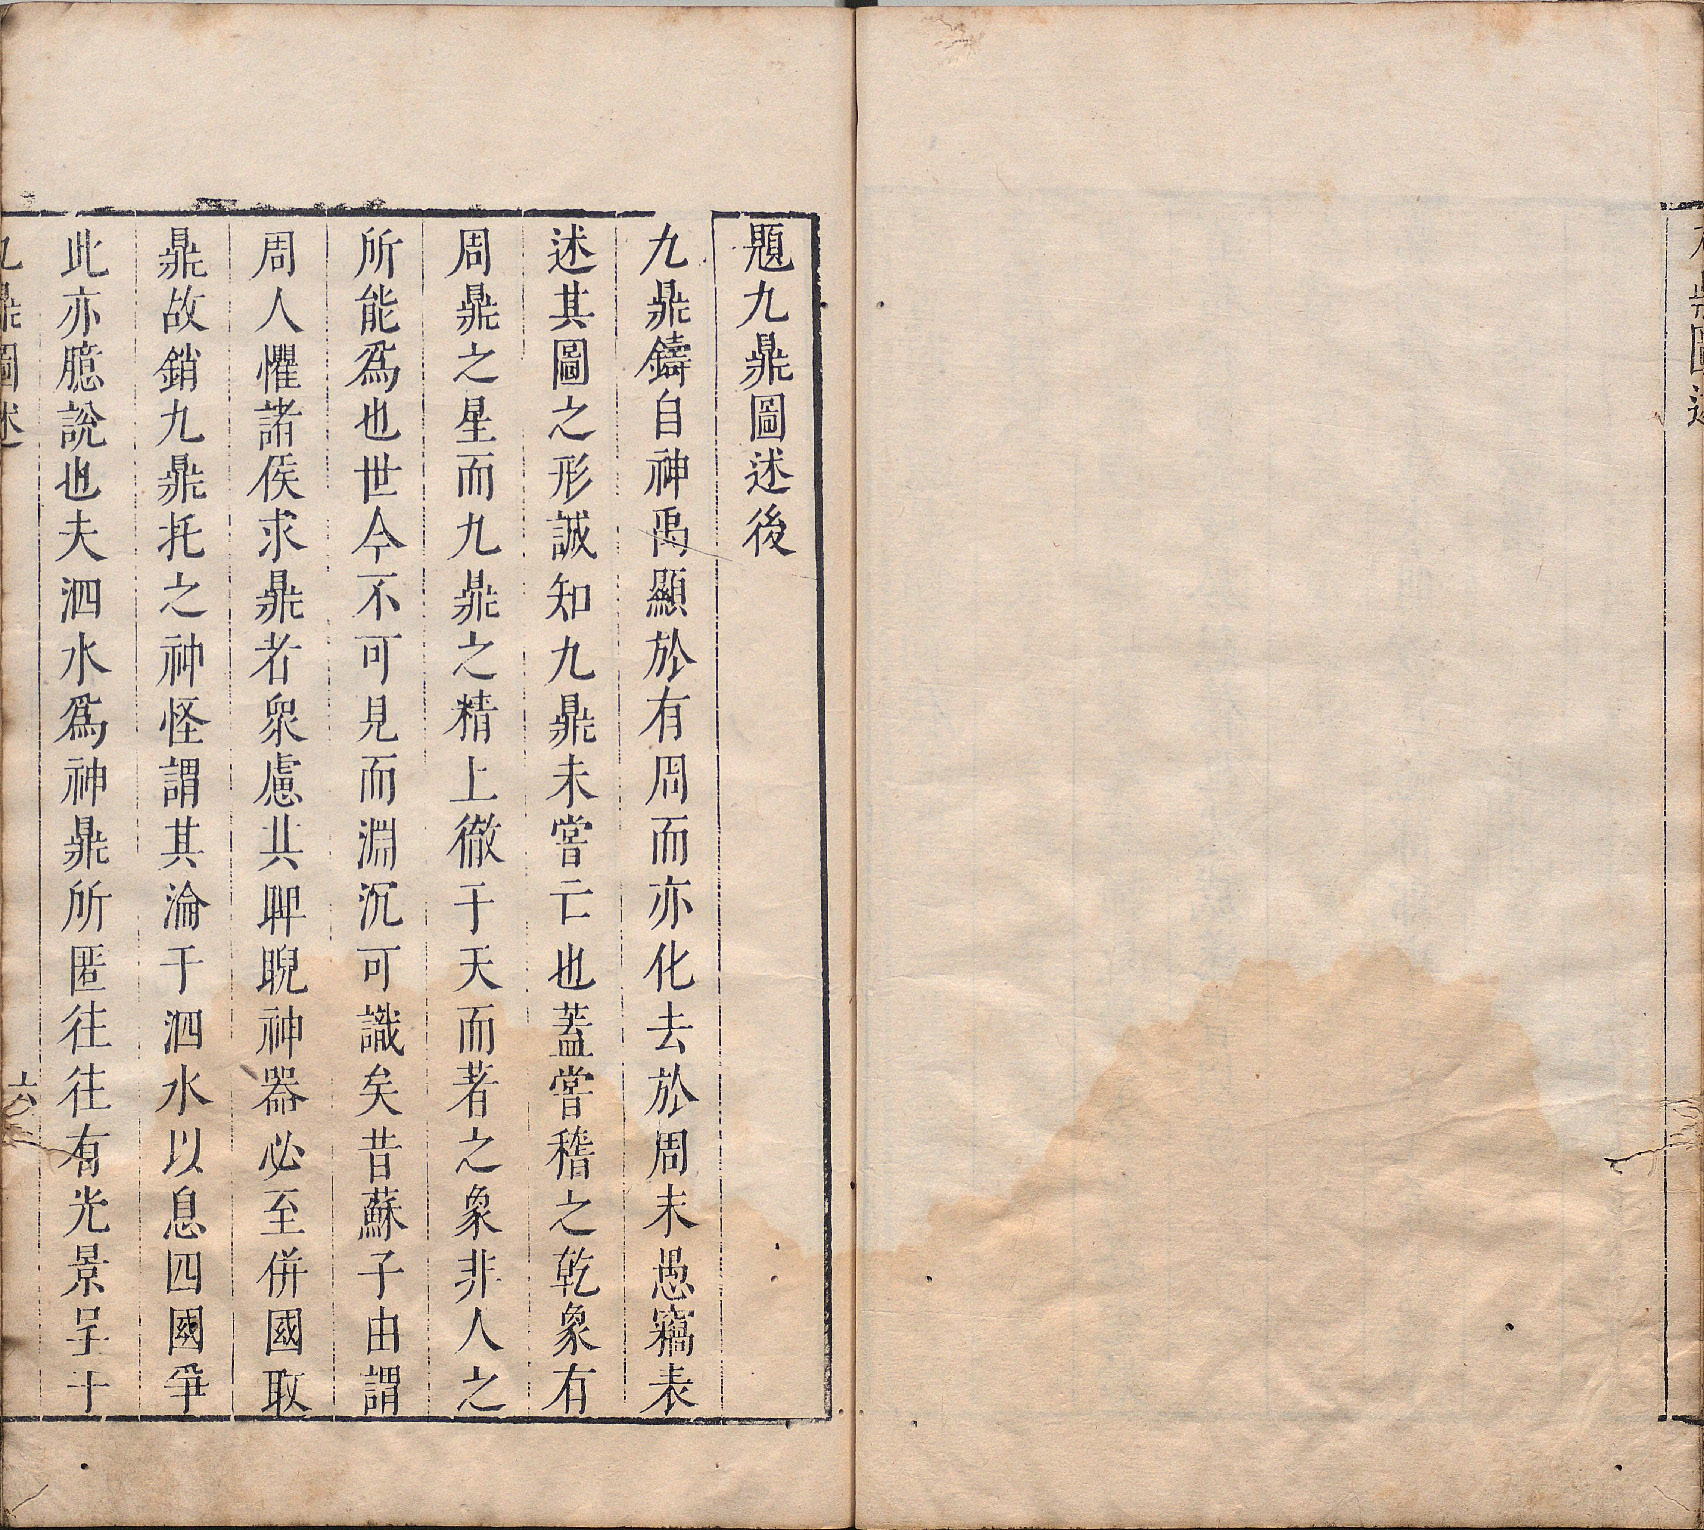 九鼎圖述
題九鼎圖述後
九鼎鑄自神禹顯於有周而亦化去於周末愚竊表
述其圖之形誠知九鼎未嘗亡也蓋嘗稽之乾象有
周鼎之星而九鼎之精上徹于天而著之象非人之
所能爲也世今不可見而淵沉可識矣昔蘇子由謂
周人懼諸侯求鼎者衆慮共睥睨神器必至併國取
鼎故銷九鼎托之神怪謂其淪于泗水以息四國爭
此亦臆說也夫泗水爲神鼎所匿往往有光景呈于
九鼎圖述 六